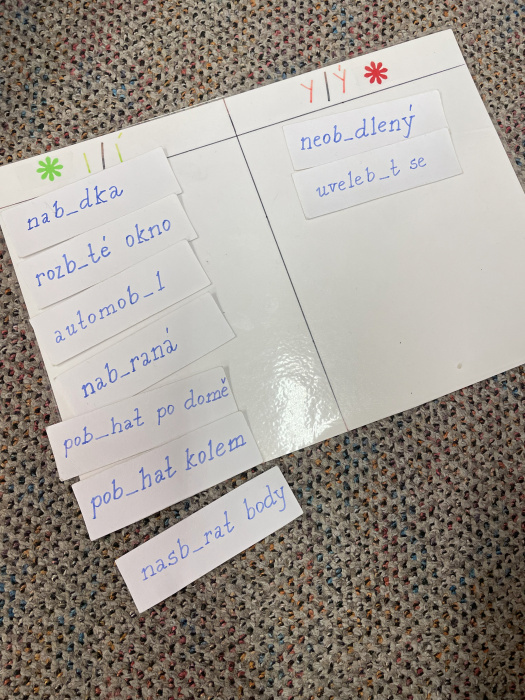 i | í
y | ý
nab_dka
rozb_té okno
automob_l
nab_raná
pob_hat po domě
pob_hat kolem
nasb_rat body
neob_dlený
uveleb_t se